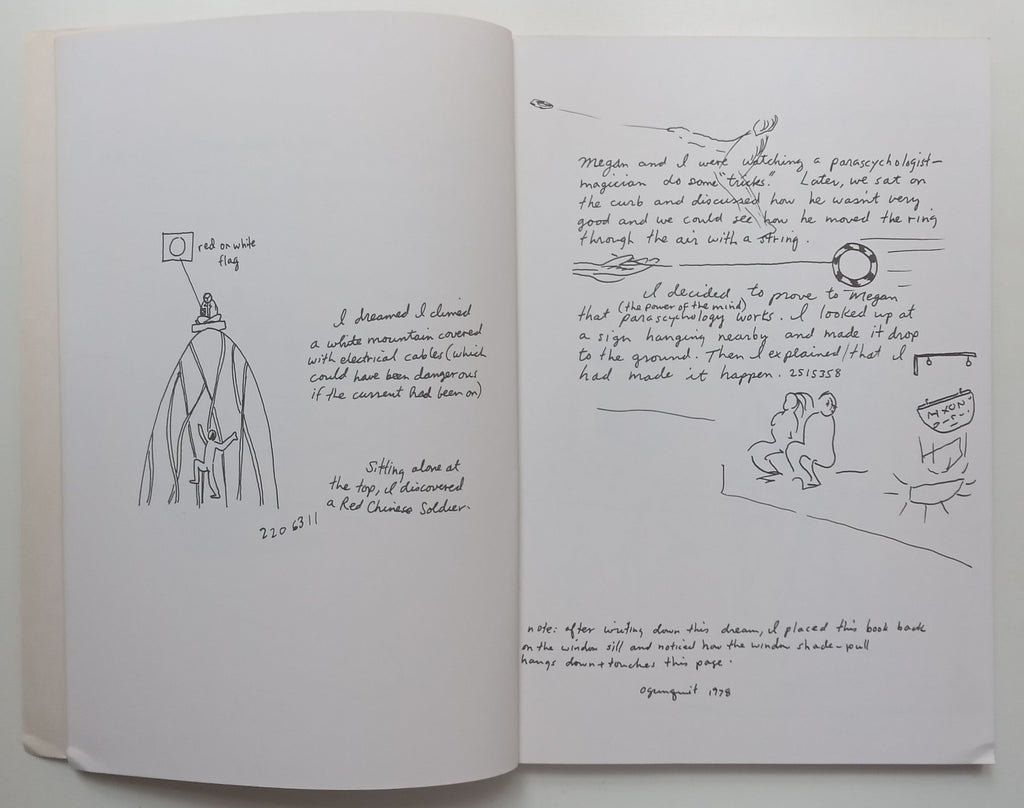 red on white
flag
I dreamed I climed
a white mountain covered
with electrical cables (which
could have been dangerous
if the current had been on)
Sitting alone at
the top, I discovered
a Red Chinese Soldier.
2206311
Megan and I were watching a parascychologist-
magician do some "tricks." Later, we sat on
the curb and discussed how he wasn't very
good and we could see how he moved the ring
through the air with a string.
I decided to prove to Megan
(the power of the mind)
that parascychology works. I looked up at
a sign hanging nearby and made it drop
to the ground. Then I explained that I
had made it happen. 2515358
note: after writing down this dream, I placed this book back
on the window sill and noticed how the window shade-pull
hangs down + touches this page.
Ogunquit 1978